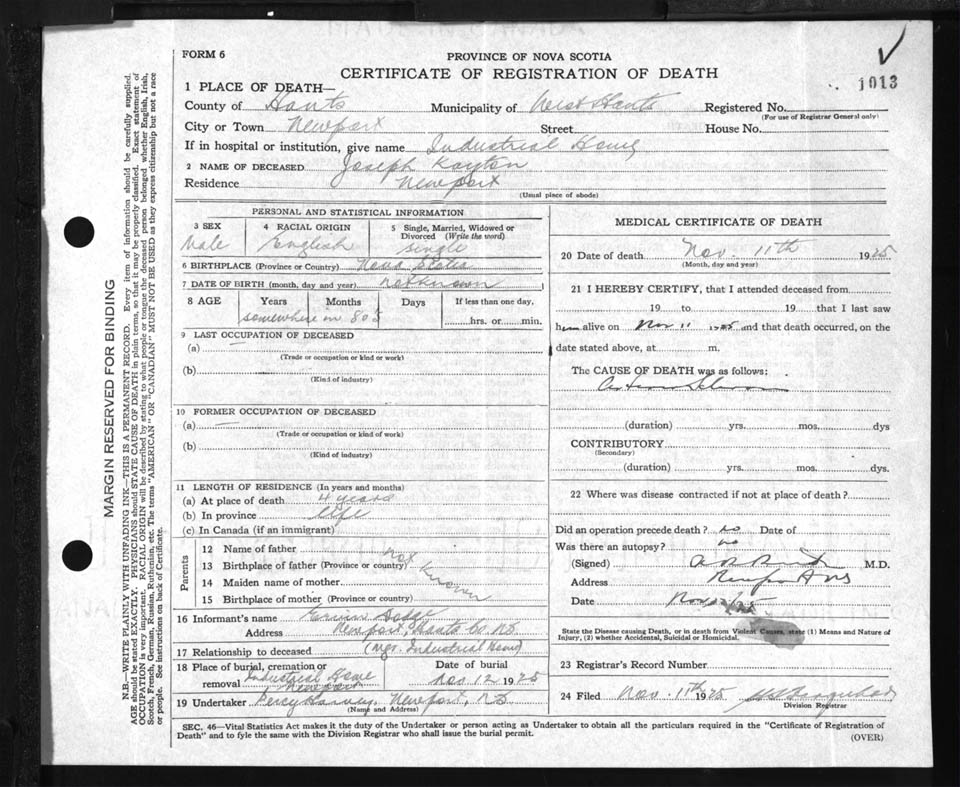 FORM 6
PROVINCE OF NOVA SCOTIA
CERTIFICATE OF REGISTRATION OF DEATH
1013
1 PLACE OF DEATH—
County of Hants Municipality of West Hants Registered No.
(For use of Registrar General only)
City or Town Newport Street House No.
If in hospital or institution, give name Industrial Home
2 NAME OF DECEASED Joseph Kayton
Residence Newport
(Usual place of abode)
PERSONAL AND STATISTICAL INFORMATION
3 SEX 4 RACIAL ORIGIN 5 Single, Married, Widowed or
Divorced (Write the word)
Male English Single
6 BIRTHPLACE (Province or Country) Nova Scotia
7 DATE OF BIRTH (month, day and year) not known
8 AGE Years Months Days If less than one day,
somewhere in 80s hrs. or min.
9 LAST OCCUPATION OF DECEASED
(a) —
(Trade or occupation or kind or work)
(b)
(Kind of industry)
10 FORMER OCCUPATION OF DECEASED
(a) —
(Trade or occupation or kind of work)
(b)
(Kind of industry)
11 LENGTH OF RESIDENCE (In years and months)
(a) At place of death 4 years
(b) In province life
(c) In Canada (if an immigrant)
Parents
12 Name of father
13 Birthplace of father (Province or country) not known
14 Maiden name of mother
15 Birthplace of mother (Province or country)
16 Informant's name
Address Newport, Hants Co. N.S.
17 Relationship to deceased (Mgr. Industrial Home)
18 Place of burial, cremation or Date of burial
removal Industrial Home Newport Nov 12 1925
19 Undertaker Percy Harvey, Newport, N.S.
(Name and Address)
MEDICAL CERTIFICATE OF DEATH
20 Date of death Nov. 11th 1925
(Month, day and year)
21 I HEREBY CERTIFY, that I attended deceased from
19 to 19 that I last saw
him alive on Nov 11 1925 and that death occurred, on the
date stated above, at m.
The CAUSE OF DEATH was as follows:
(duration) yrs. mos. dys
CONTRIBUTORY
(Secondary)
(duration) yrs. mos. dys.
22 Where was disease contracted if not at place of death?
Did an operation precede death? no Date of
Was there an autopsy? no
(Signed) M.D.
Address Newport NS
Date Nov 12/25
State the Disease causing Death, or in death from Violent Causes, state (1) Means and Nature of
Injury, (2) whether Accidental, Suicidal or Homicidal.
23 Registrar's Record Number
24 Filed Nov. 11th 1925
Division Registrar
SEC. 46—Vital Statistics Act makes it the duty of the Undertaker or person acting as Undertaker to obtain all the particulars required in the "Certificate of Registration of
Death" and to fyle the same with the Division Registrar who shall issue the burial permit.
(OVER)
MARGIN RESERVED FOR BINDING
N.B.—WRITE PLAINLY WITH UNFADING INK—THIS IS A PERMANENT RECORD. Every item of information should be carefully supplied.
AGE should be stated EXACTLY. PHYSICIANS should STATE CAUSE OF DEATH in plain terms, so that it may be properly classified. Exact statement of
OCCUPATION is very important. RACIAL ORIGIN will be described by stating to what people or tongue the deceased person belonged, whether English, Irish,
Scotch, French, German, Russian, Ruthenian, etc. The terms "AMERICAN" OR "CANADIAN" MUST NOT BE USED as they express citizenship but not a race
or people. See instructions on back of Certificate.